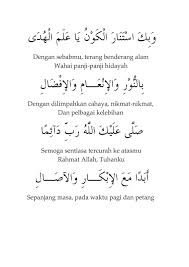 وَبِكَ اسْتَنَارَ الْكَوْنُ يَا عَلَمَ الْهُدَى
Dengan sebabmu, terang benderang alam
Wahai panji-panji hidayah
بِالنُّوْرِ وَالْإِنْعَـــامِ وَالْإِفْضَالِ
Dengan dilimpahkan cahaya, nikmat-nikmat,
Dan pelbagai kelebihan
صَلَّى عَلَيْكَ اللَّهُ رَبِّ دَآئِمًا
Semoga sentiasa tercurah ke atasmu
Rahmat Allah, Tuhanku
أَبَدًا مَعَ الْإِبْكَـــارِ وَالْآصَـــالِ
Sepanjang masa, pada waktu pagi dan petang